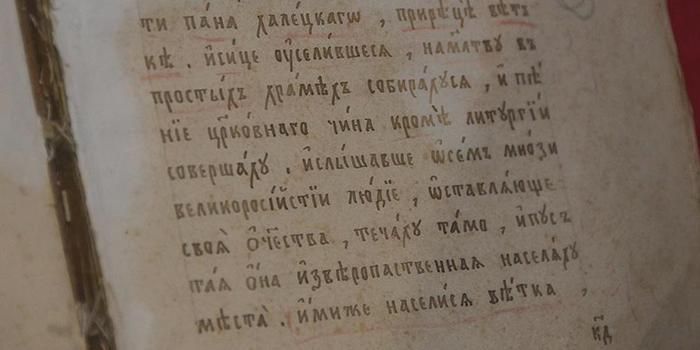 ти па́на халє́цкагѡ , прирѣ́цѣ вѣ́тъ
кѣ . и҆си́це ѹ҆сели́вшеся , намл҃тву въ
просты́хъ хра́мѣхъ собира́хуся , и҆ пѣ́
нїе цр҃ко́внаго чи́на кромѣ̀ литургі́и
соверша́ху . и҆слы́шавше ѡ҆се́мъ мно́зи
великоросі́йстїи лю́дїе , ѡ҆ставля́юще
своѧ̀ ѻ҆те́чества , теча́ху та́мо , и҆пус
ты́я о҆́на и҆звѣропа́ственная населя́ху
мѣста̀ . и҆́миже насели́ся вѣ́тка ,
к҃д